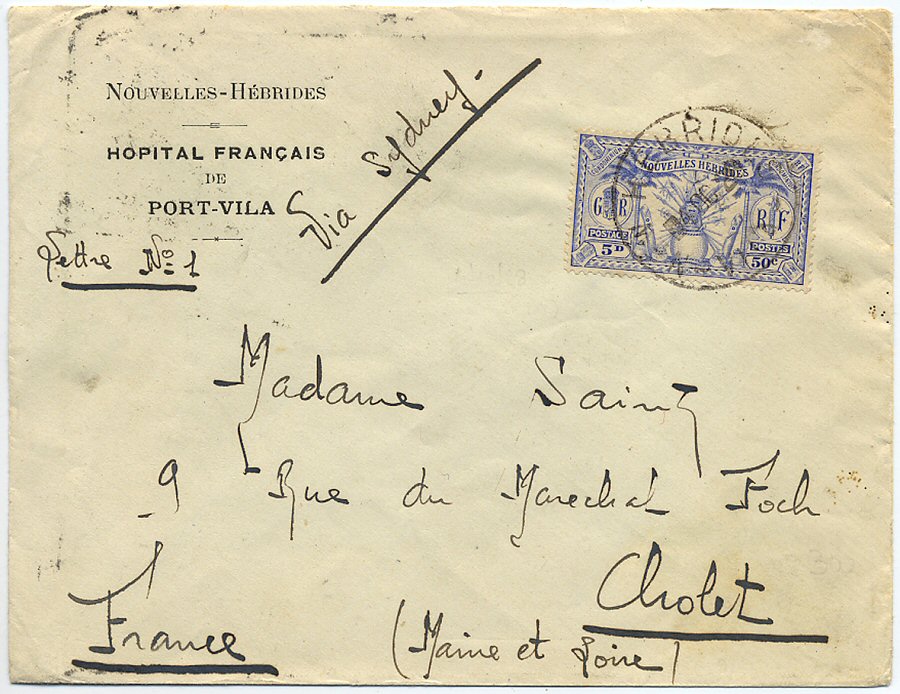 NOUVELLES-HÉBRIDES
HOPITAL FRANÇAIS
DE
PORT-VILA
Lettre No 1
Via Sydney.
NOUVELLES HEBRIDES
G R
R F
POSTAGE
POSTES
5D
50c
Madame Saint
9 Rue du Marechal Foch
Cholet
France (Maine et Loire)